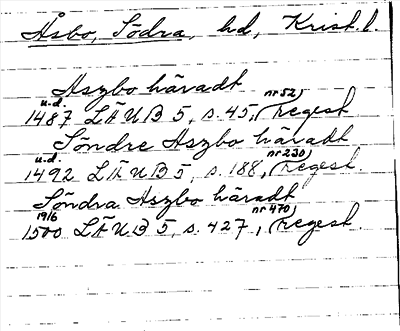 Åsbo, Södra, hd, Krist. l.
Aszbo häradt
u.d. nr 52)
1487 LÄUB 5, s. 45, (regest
Söndre Aszbo häradt
u.d. nr 230)
1492 LÄUB 5, s. 188, (regest.
Söndra Aszbo häradt
19/6 nr 470)
1500 LÄUB 5, s. 427, (regest.